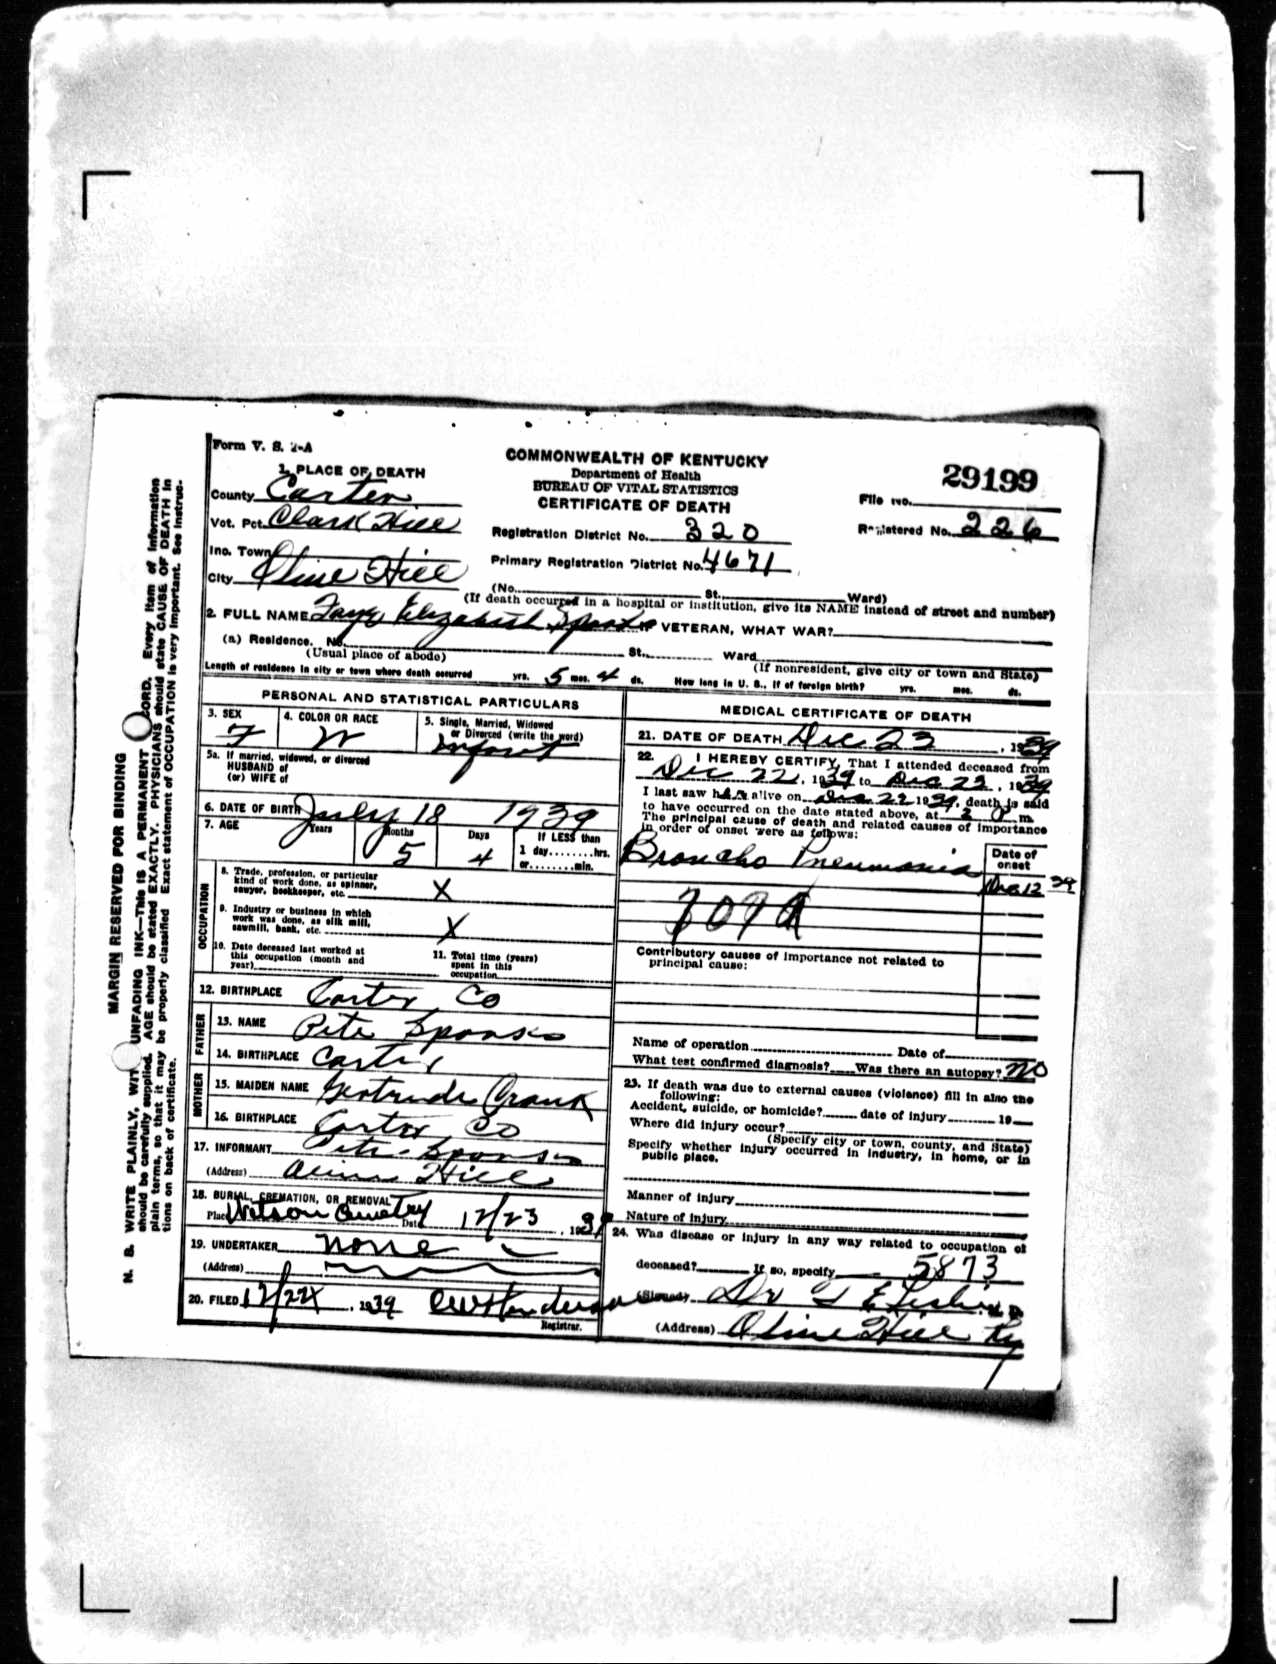 Form V. S. 2-A
COMMONWEALTH OF KENTUCKY
Department of Health
BUREAU OF VITAL STATISTICS
CERTIFICATE OF DEATH
29199
File No.
Registered No. 226
1. PLACE OF DEATH
County Carter
Vot. Pct. Clark Hill
Inc. Town
City Olive Hill
Registration District No. 320
Primary Registration District No. 4671
(No. St. Ward)
(If death occurred in a hospital or institution, give its NAME instead of street and number)
2. FULL NAME Faye Elizabeth Sparks IF VETERAN, WHAT WAR?
(a) Residence. No. St. Ward
(Usual place of abode) (If nonresident, give city or town and State)
Length of residence in city or town where death occurred yrs. 5 mos. 4 ds. How long in U. S., if of foreign birth? yrs. mos. ds.
PERSONAL AND STATISTICAL PARTICULARS
3. SEX
F
4. COLOR OR RACE
W
5. Single, Married, Widowed
or Divorced (write the word)
Infant
5a. If married, widowed, or divorced
HUSBAND of
(or) WIFE of
6. DATE OF BIRTH July 18 1939
7. AGE Years Months Days If LESS than
5 4 1 day........hrs.
or........min.
OCCUPATION
8. Trade, profession, or particular
kind of work done, as spinner,
sawyer, bookkeeper, etc. X
9. Industry or business in which
work was done, as silk mill,
sawmill, bank, etc. X
10. Date deceased last worked at
this occupation (month and
year)
11. Total time (years)
spent in this
occupation
12. BIRTHPLACE Carter Co
FATHER
13. NAME Pete Sparks
14. BIRTHPLACE Carter
MOTHER
15. MAIDEN NAME Gertrude Crank
16. BIRTHPLACE Carter Co
17. INFORMANT Pete Sparks
(Address) Olive Hill
18. BURIAL, CREMATION, OR REMOVAL
Place Wilson Cemetery Date 12/23, 1939
19. UNDERTAKER none
(Address)
20. FILED , 1939
Registrar.
MEDICAL CERTIFICATE OF DEATH
21. DATE OF DEATH Dec 23, 1939
22. I HEREBY CERTIFY, That I attended deceased from
Dec 22, 1939 to Dec 22, 1939
I last saw her alive on Dec 22 1939, death is said
to have occurred on the date stated above, at 2 P m.
The principal cause of death and related causes of importance
in order of onset were as follows:
Date of
onset
Broncho Pneumonia
Dec 12 39
107A
Contributory causes of importance not related to
principal cause:
Name of operation Date of
What test confirmed diagnosis? Was there an autopsy? No
23. If death was due to external causes (violence) fill in also the
following:
Accident, suicide, or homicide? date of injury 19
Where did injury occur?
(Specify city or town, county, and State)
Specify whether injury occurred in industry, in home, or in
public place.
Manner of injury
Nature of injury
24. Was disease or injury in any way related to occupation of
deceased? If so, specify 5873
(Signed) Dr
(Address) Olive Hill Ky
MARGIN RESERVED FOR BINDING
N. B. WRITE PLAINLY, WITH UNFADING INK—This is A PERMANENT RECORD. Every item of information
should be carefully supplied. AGE should be stated EXACTLY. PHYSICIANS should state CAUSE OF DEATH in
plain terms, so that it may be properly classified. Exact statement of OCCUPATION is very important. See instruc-
tions on back of certificate.